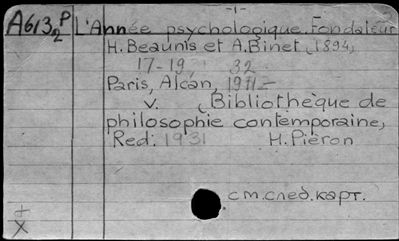 -1-
A613/2 P L'Année psychologique. Fondateur
H. Beaunis et A. Binet, 1894,
17-19 32
Paris, Alcan, 1911-
v. (Bibliothèque de
philosophie contemporaine,
Red: 1931 H. Piéron
см. след. карт.
+
X